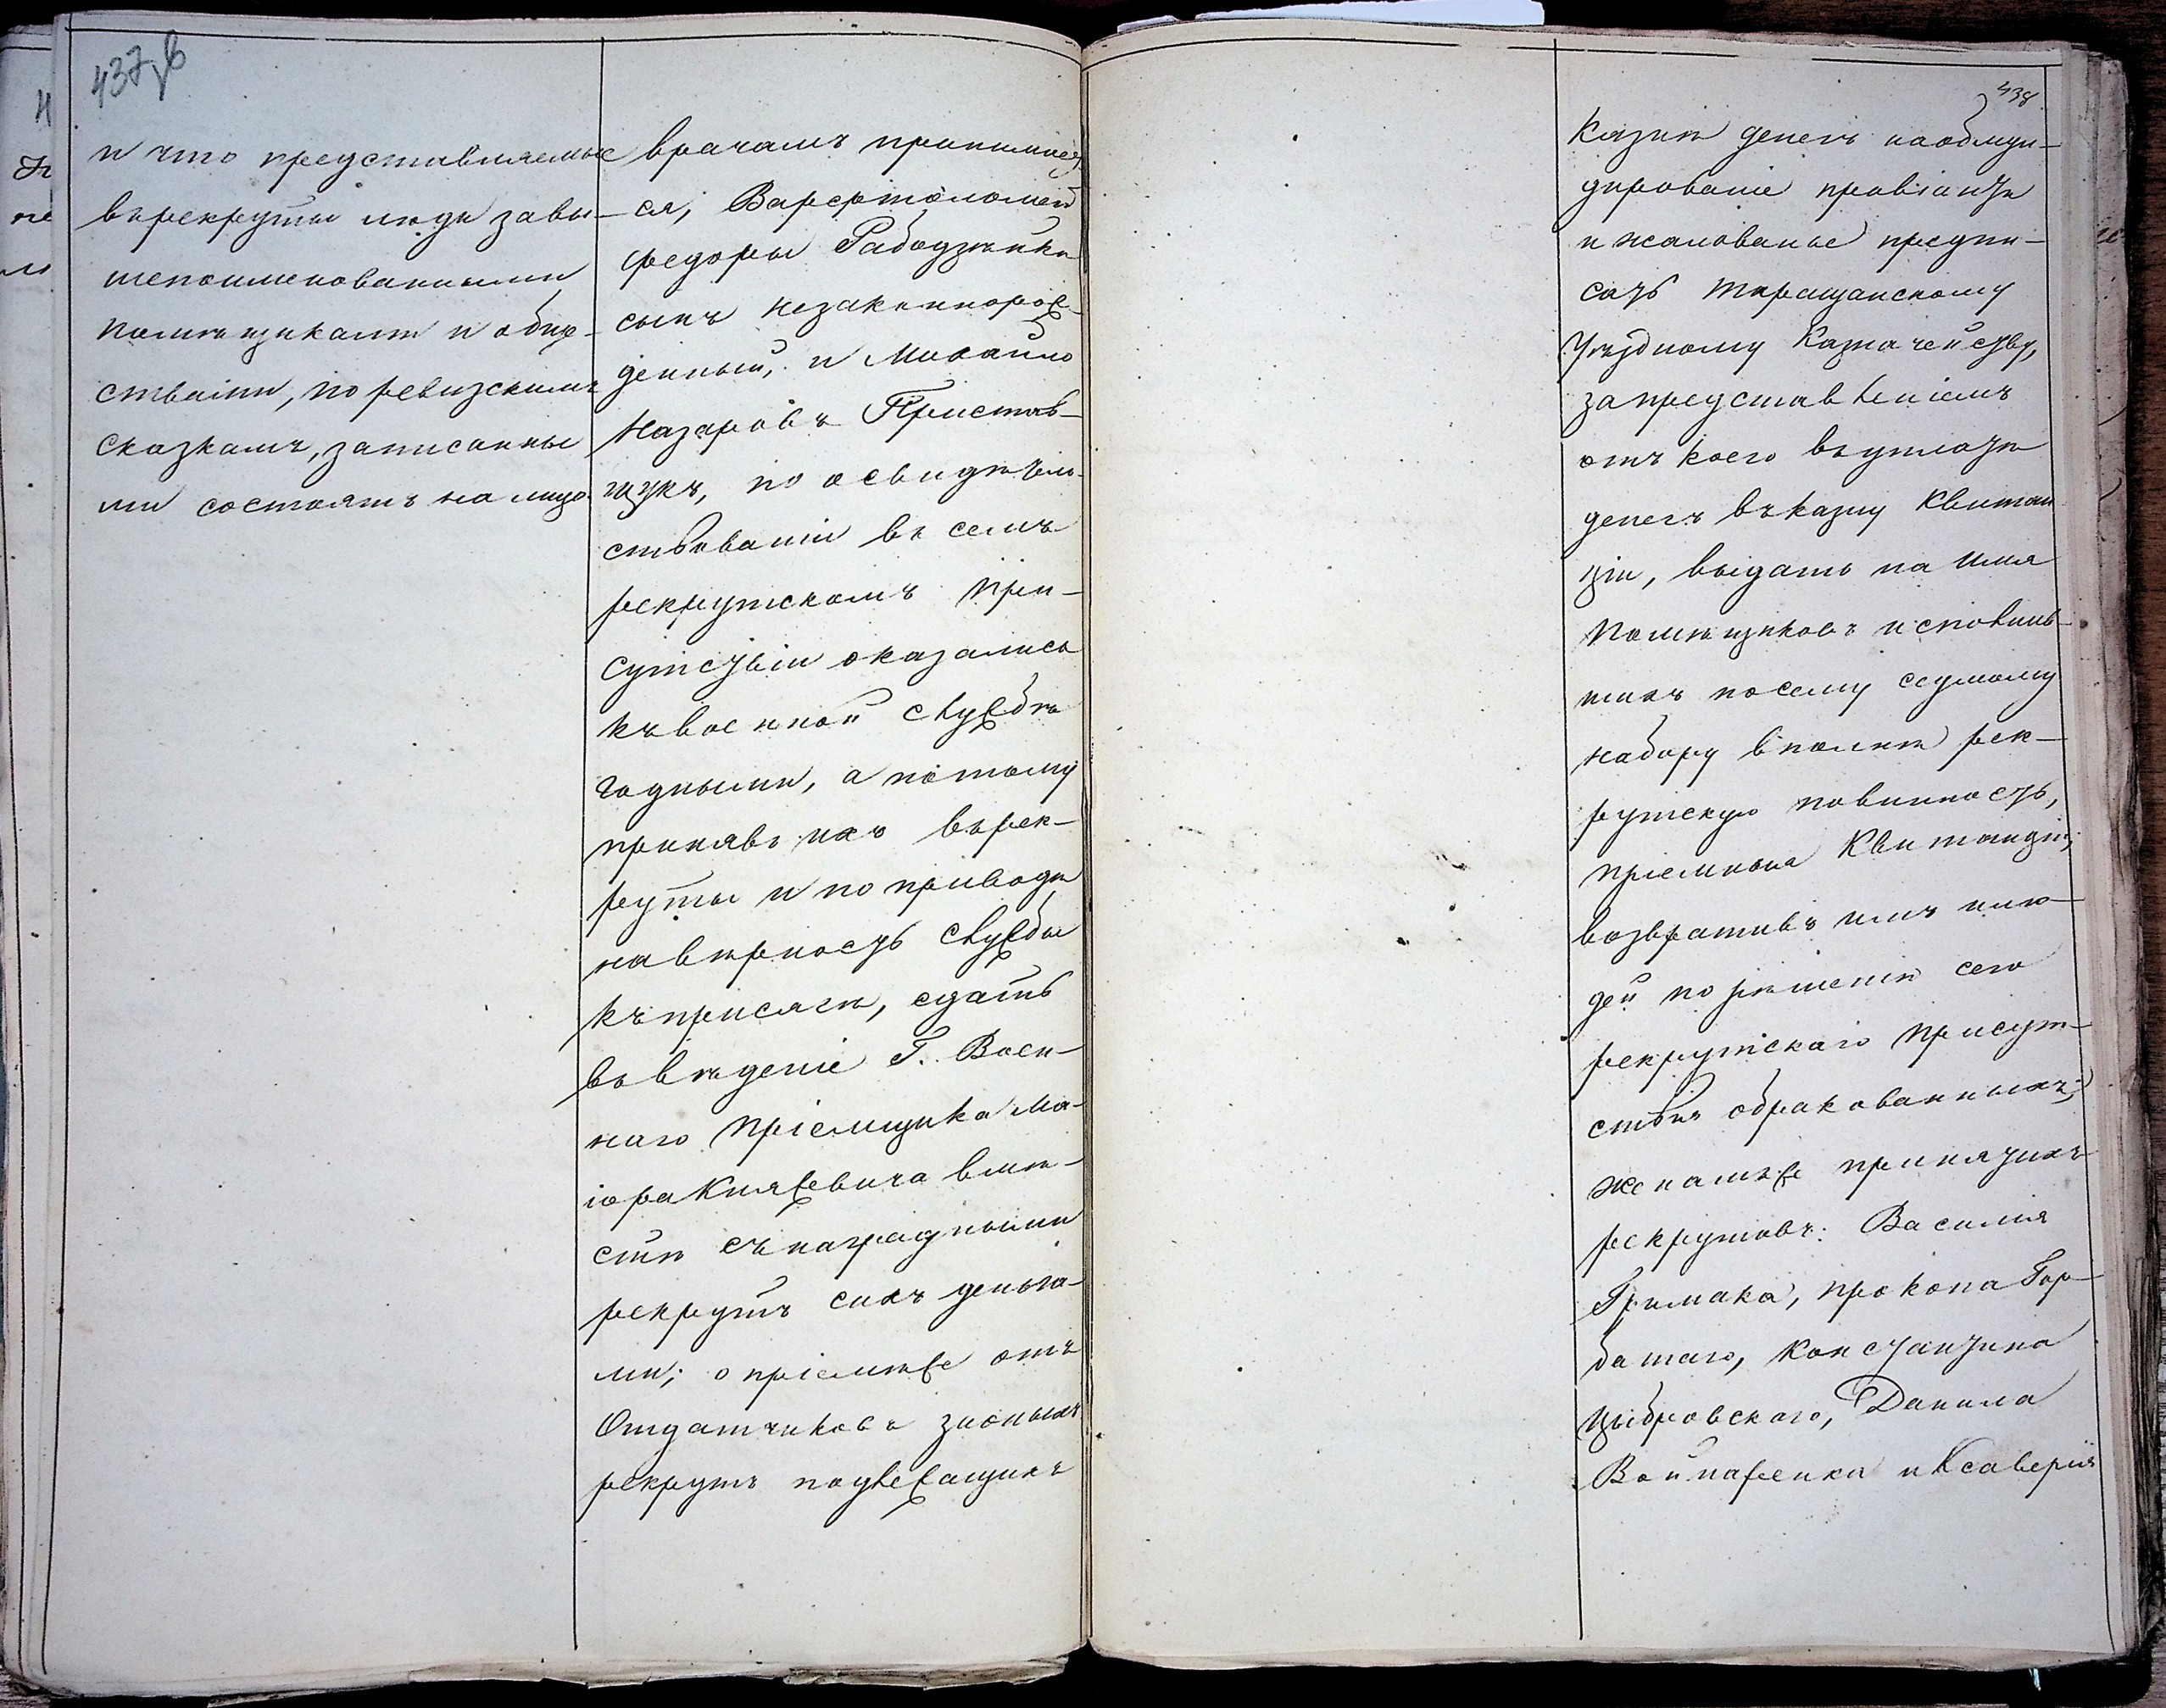 437 об
и что представляемые
въ рекруты люди за вы-
шепоименованными
помѣщиками и обще-
ствами, по ревизскимъ
сказкамъ, записанны
ми состоятъ на лицо.
врачамъ
ся, Варфоломей
Федоры
сынъ незаконнорож-
денный, и Михайло
Назаровъ Пристав-
щукъ, по освидѣтель-
ствованіи въ семъ
рекрутскомъ при-
сутствіи оказались
къ военной службѣ
годными, а потому
принявъ ихъ въ рек-
руты и по приводѣ
на вѣрность службы
къ присягѣ, сдать
въ вѣденіе Г. Воен-
наго Пріемщика Ма-
іора Княжевича вмѣ-
стѣ съ наградными
рекрутъ сихъ деньга-
ми; о пріемѣ же отъ
Отдатчиковъ за оныхъ
рекрутъ подлежащихъ
438
Казнѣ денегъ на обмун-
дированіе провіантъ
и жалованье предпи-
сать Таращанскому
Уѣздному Казначейству,
за представленіемъ
отъ коего въ уплатѣ
денегъ въ казну Квитан
ціи, выдать на имя
Помѣщиковъ исполнив-
шихъ по сему седьмому
набору вполнѣ рек-
рутскую повинность,
пріемныя Квитанціи,
возвративъ имъ лю-
дей по рѣшенію сего
рекрутскаго Присут-
ствія обракованныхъ;
женамъ же принятыхъ
рекрутовъ: Василія
Гримака, Прокопа Гор-
батаго, Константина
Цыбровскаго, Данила
Войнаренка и Ксаверія